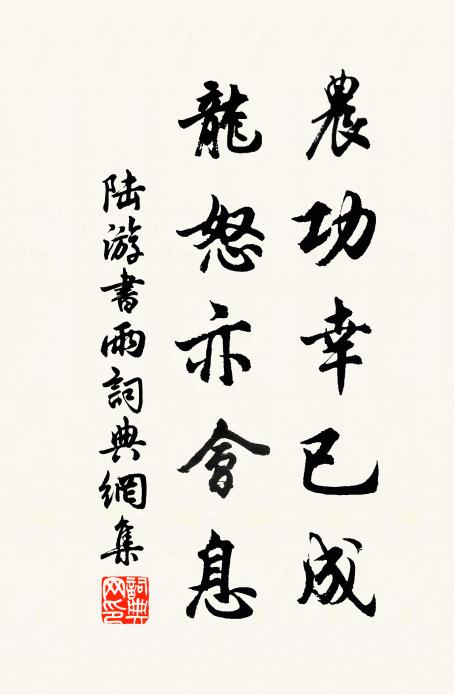 農功幸已成
龍怒亦會息
陆游書雨詞典網集
詞典网印